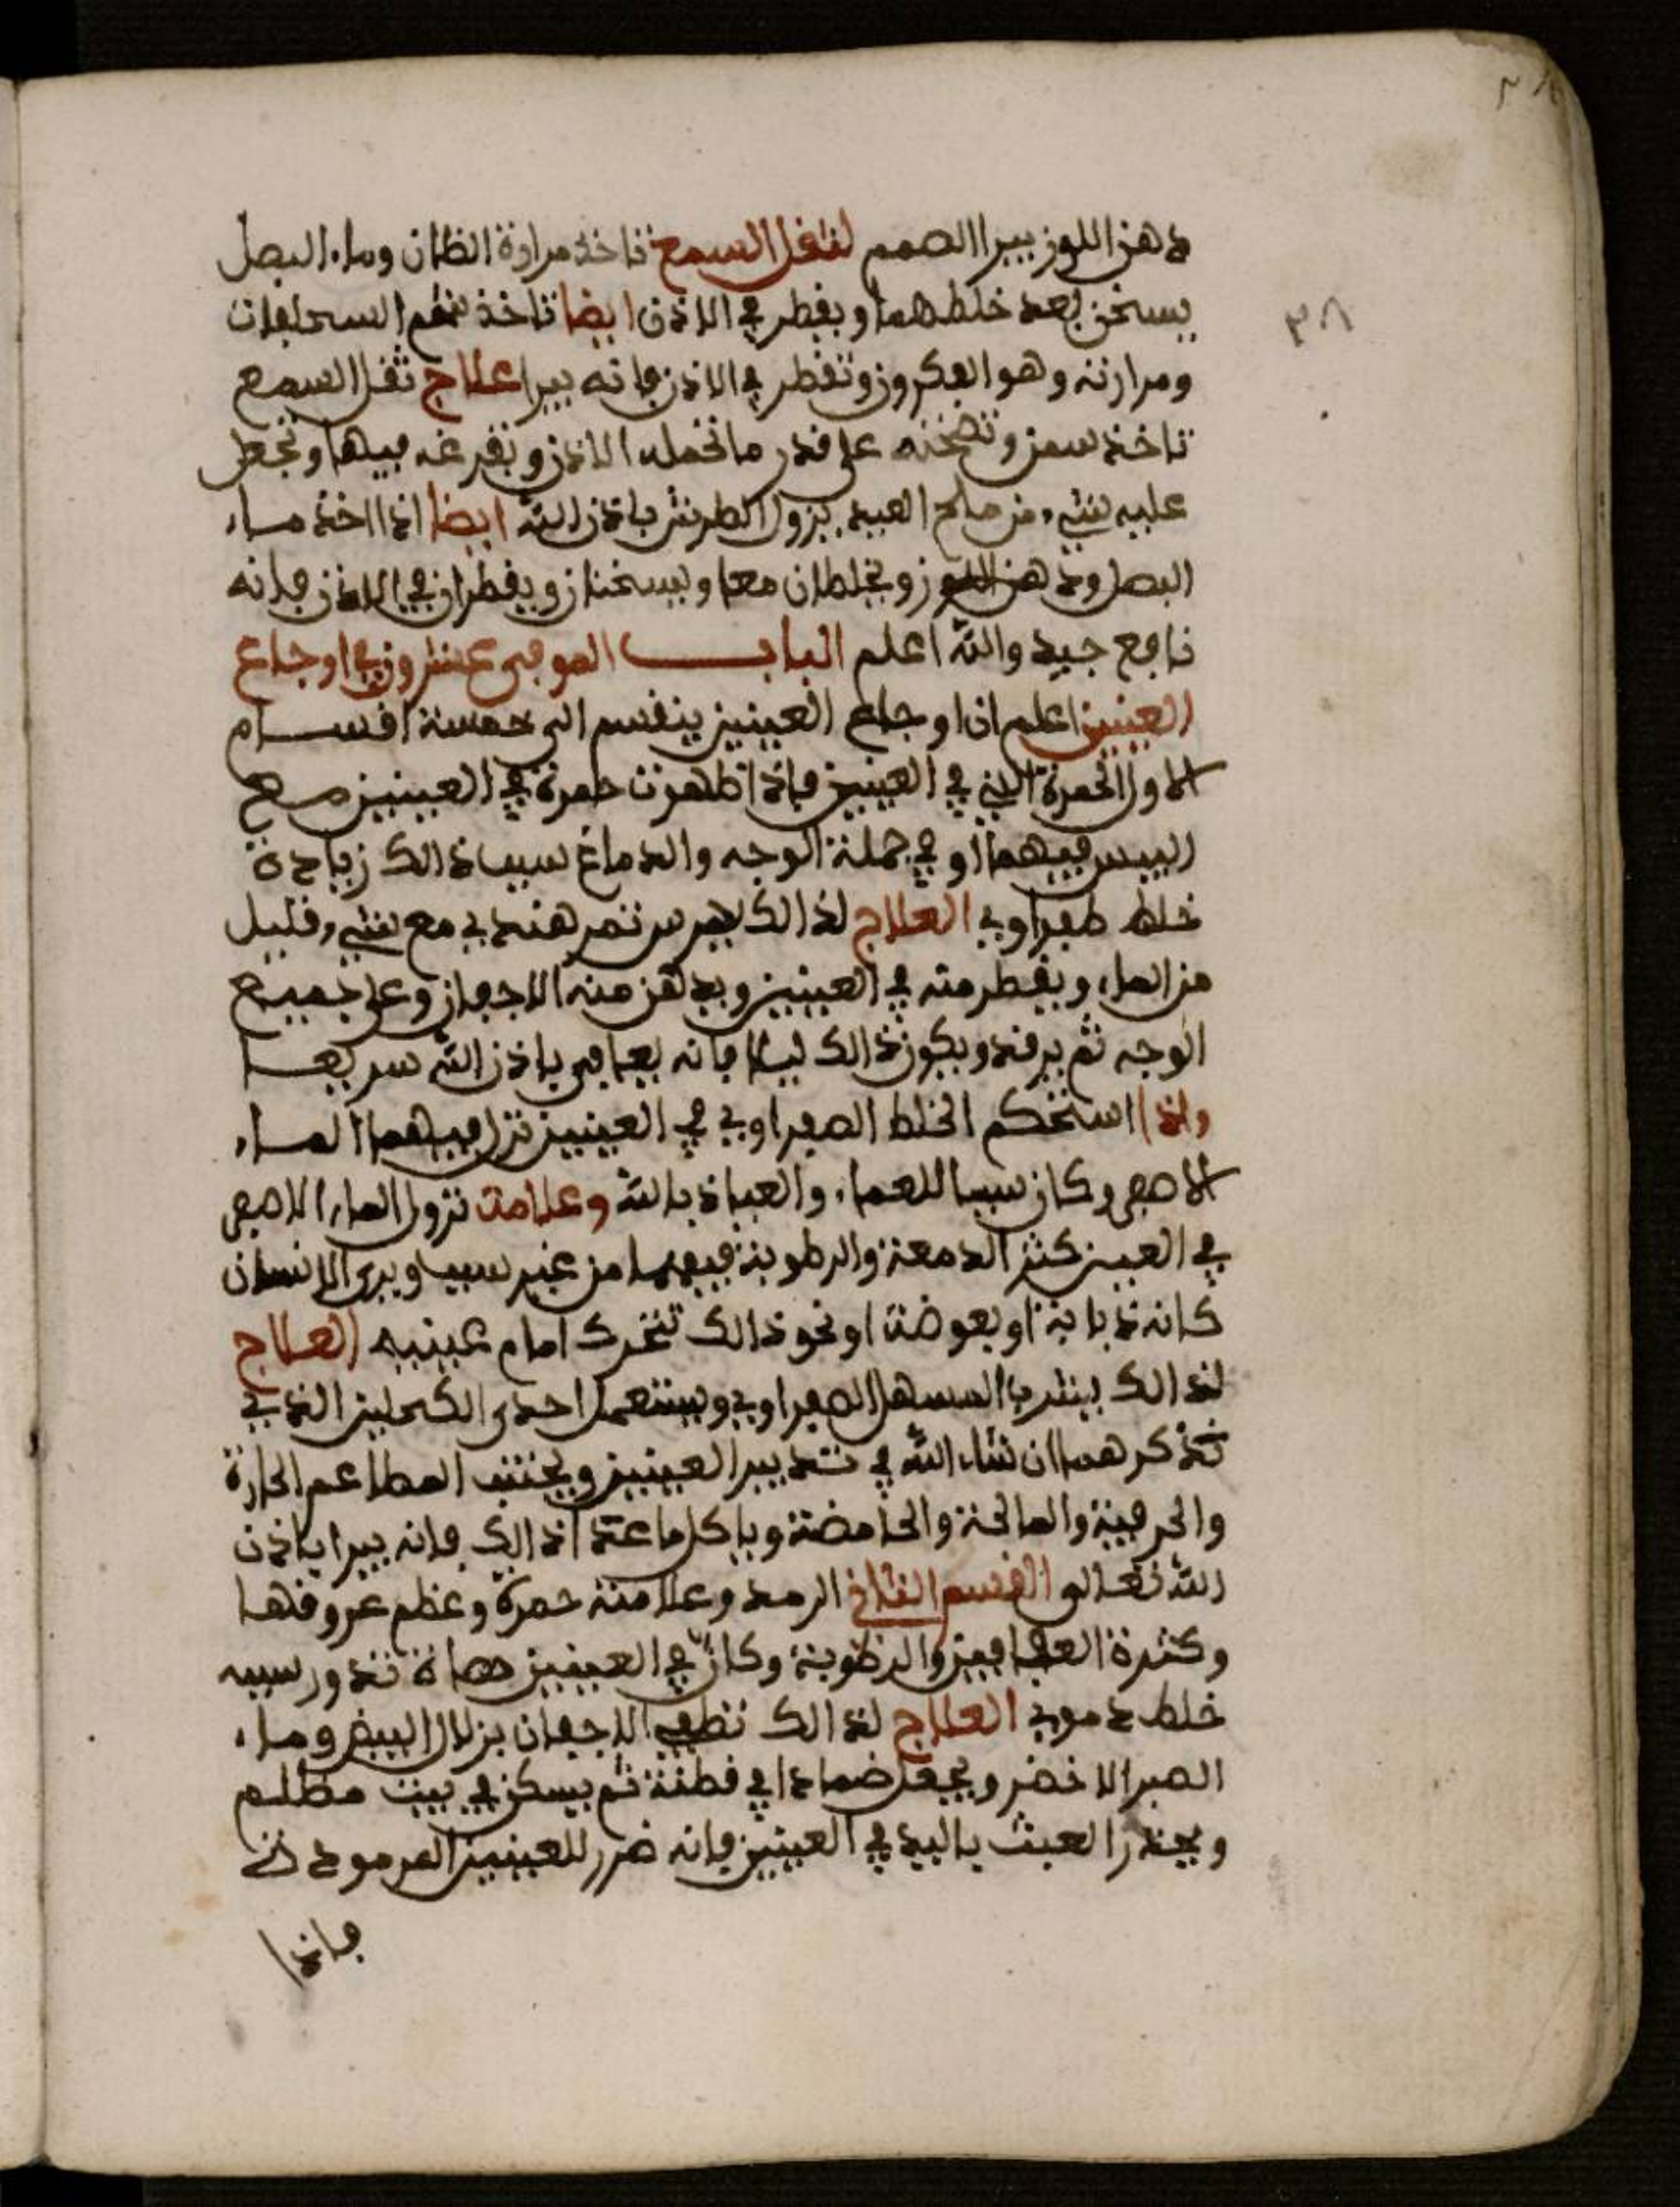 ٣٨
دهن اللوز يبرا الصمم لثقل السمع تاخذ مرارة الظان وماء البصل
يسخن بعد خلطهما ويقطر في الاذن ايضا تاخذ شحم السحلفات
ومرارته وهو الفكرون وتقطر في الاذن فانه يبرا علاج ثقل السمع
تاخذ سمن وتسخنه على قدر ما تحمله الاذن وتفرغه فيها وتجعل
عليه شيء من ملح العبيد يزول الطرش باذن الله ايضا اذا اخذ ماء
البصل ودهن اللوز ويخلطان معا ويسخنان ويقطران في الاذن فانه
نافع جيد والله اعلم الباب الموفى عشرون في اوجاع
العينين اعلم ان اوجاع العينين ينقسم الى خمسة اقسام
الاول الحمرة التي في العينين فاذا ظهرت حمرة في العينين مع
اليبس فيهما او في جملة الوجه والدماغ سببه ذالك زيادة
خلط صفراوي العلاج لذالك يمرس تمر هندي مع شيء قليل
من الماء ويقطر منه في العينين ويدهن منه الاجفان وعلى جميع
الوجه ثم يرقد ويكون ذالك ليلا فانه يعافى باذن الله سريعا
واذا استحكم الخلط الصفراوي في العينين نزل فيهما الماء
الاصفر وكان سببا للعماء والعياذ بالله وعلامت نزول الماء الاصفر
في العين كثر الدمعة والرطوبة فيهما من غير سبب ويرى الانسان
كانه ذبابة او بعوضة او نحو ذالك تتحرك امام عينيه العلاج
لذالك يشرب المسهل الصفراوي ويستعمل احدى الكحلين الذي
نذكرهما ان شاء الله في تدبير العينين ويجتنب المطاعم الحارة
والحريفة والمالحة والحامضة وياكل ما عدا ذالك فانه يبرا باذن
الله تعالى القسم الثاني الرمد وعلامته حمرة وعظم عروقها
وكثرة العمافين والرطوبة وكان في العينين حصاة تدور سببه
خلط دموي العلاج لذالك تطلى الاجفان بزلال البيض وماء
الصبر الاخضر ويجعل ضمادا في قطنة ثم يسكن في بيت مظلم
ويحذر العبث باليد في العينين فانه ضرر للعينين المرمودتي
فاذا